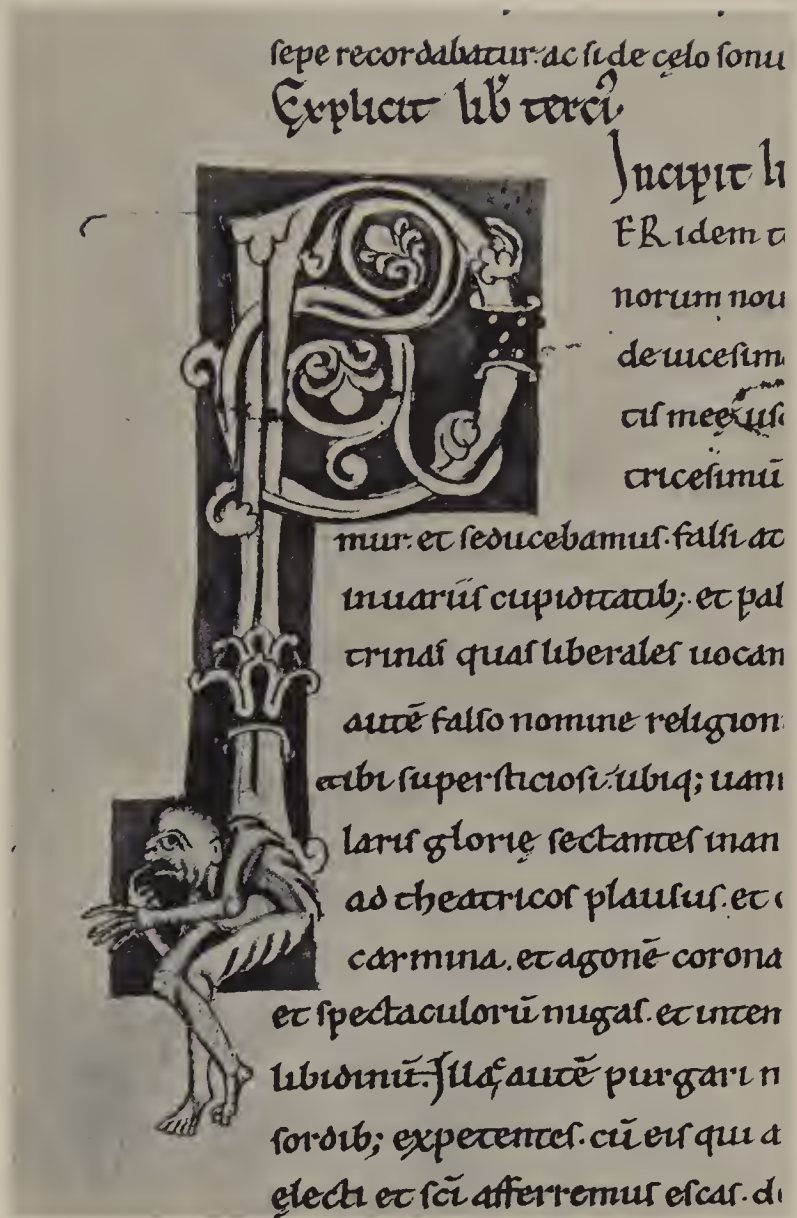 sepe recordabatur. ac si de cęlo sonu
Explicit lib̄ terci᷒
Incipit li
PER idem t
norum nou
de uicesim
tis meę us
tricesimū
mur. et seducebamur. falsi at
in uariis cupiditatib; et pal
trinas quas liberales uocan
autē falso nomine religion
et ibi supersticiosi. ubiq; uani
laris glorię sectantes inan
ad theatricos plausus. et c
carmina. et agonē corona
et spectaculorū nugas. et intem
libidinū. Illac autē purgari n
sordib; expetentes. cū eis qui a
electi et sc̄i afferremus escas. de